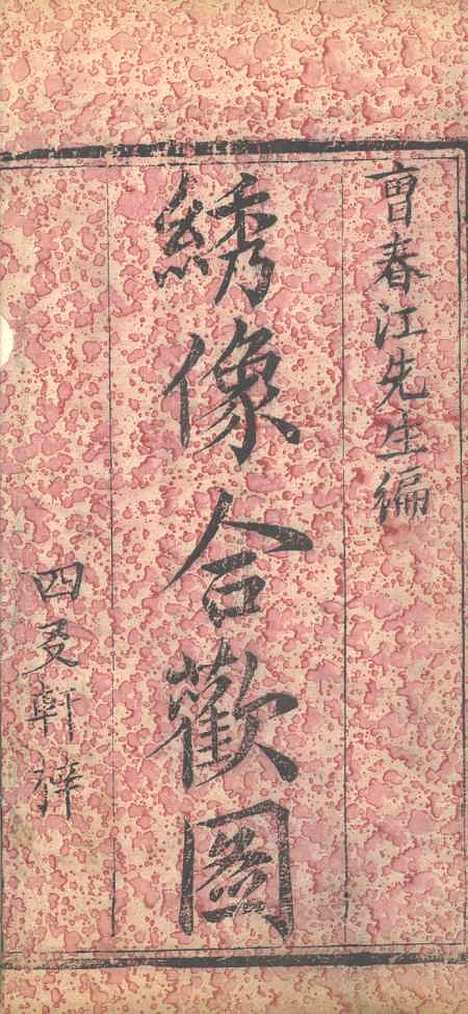 曺春江先生編
綉像合歡圖
四友軒梓